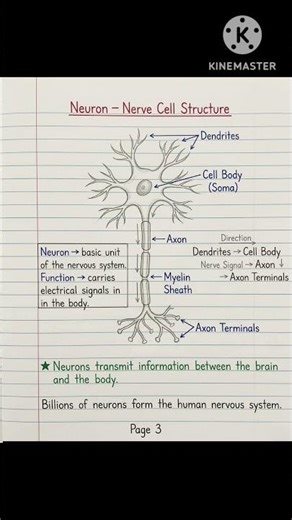 KINEMASTER
Neuron – Nerve Cell Structure
Dendrites
Cell Body
(Soma)
Axon
Direction
Dendrites → Cell Body
Nerve Signal → Axon ↓
→ Axon Terminals
Neuron → basic unit
of the nervous system.
Function → carries
electrical signals in
in the body.
Myelin
Sheath
Axon Terminals
★ Neurons transmit information between the brain
and the body.
Billions of neurons form the human nervous system.
Page 3